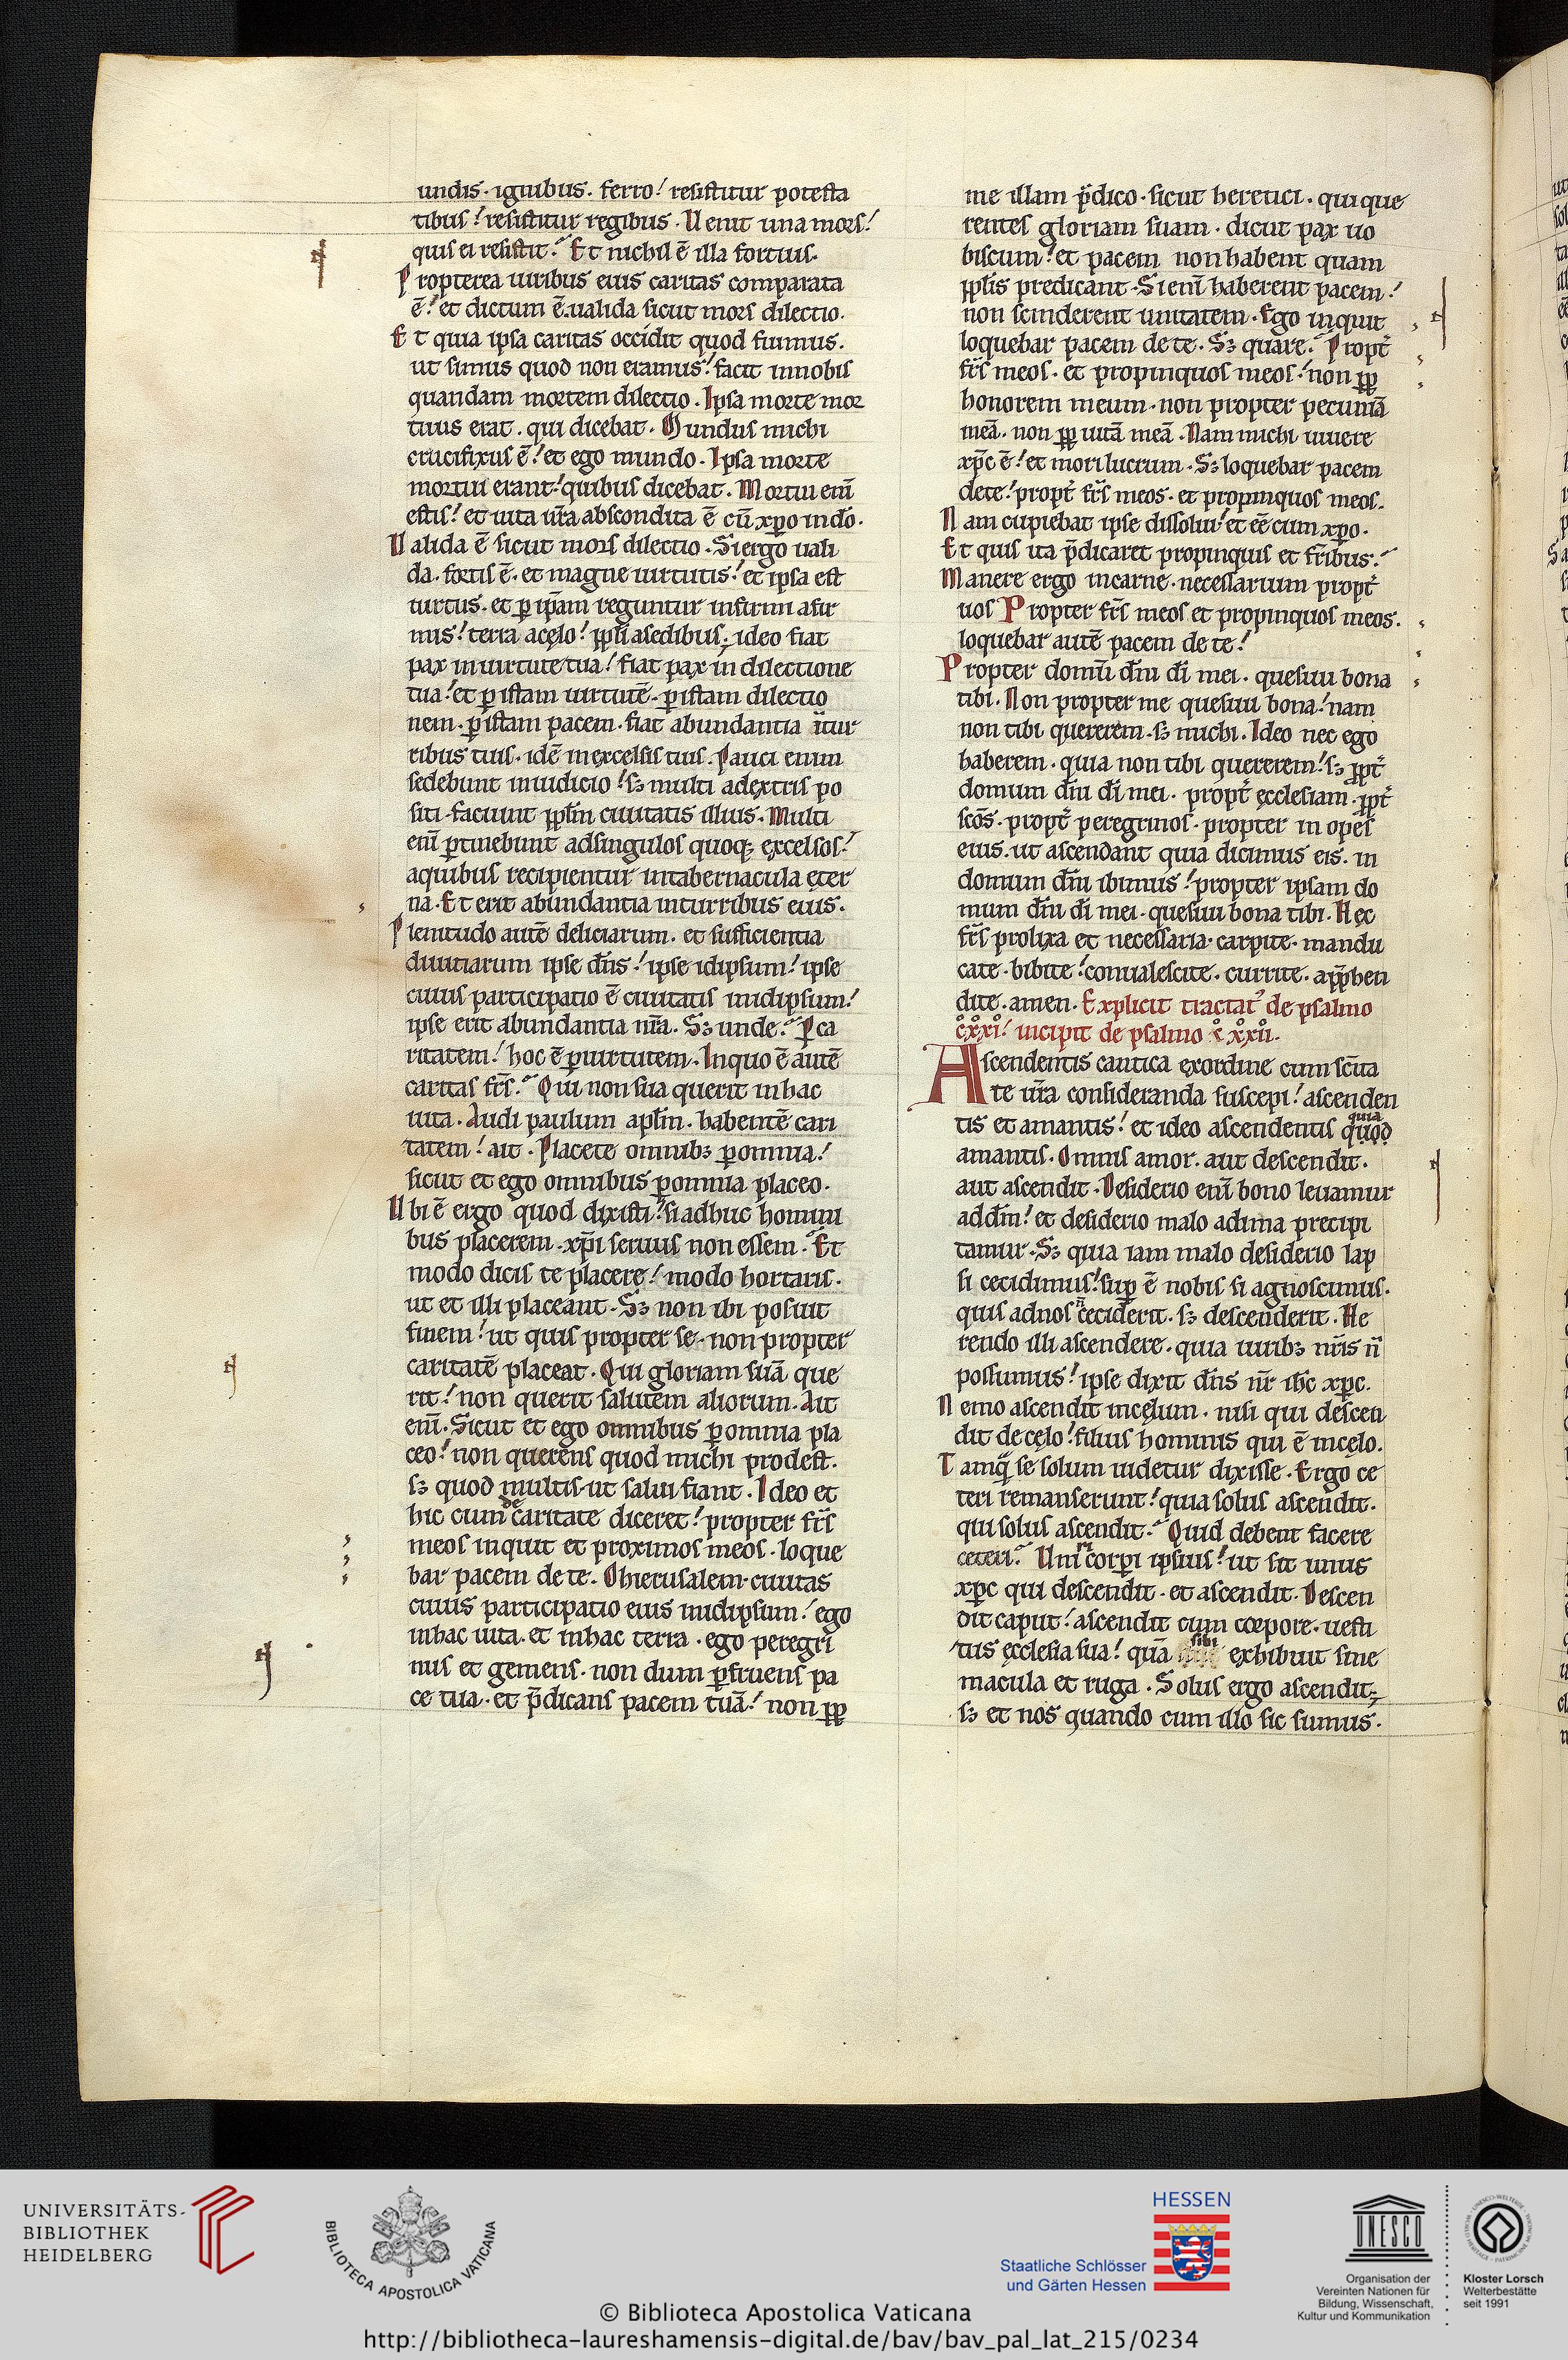 undis · ignibus · ferro! resistitur potesta
tibus! resistitur regibus · Uenit una mors!
quis ei resistit? Et nichil ē illa fortius.
Propterea uiribus eius caritas comparata
ē! et dictum ē · ualida sicut mors dilectio.
Et quia ipsa caritas occidit quod fuimus.
ut simus quod non eramus! facit in nobis
quandam mortem dilectio · Ipsa morte mor
tuus erat · qui dicebat · Mundus michi
crucifixus ē! et ego mundo · Ipsa morte
mortui erant! quibus dicebat · Mortui enī
estis! et uita ur̄a abscondita ē cū xp̄o in dō.
Ualida ē sicut mors dilectio · Si ergo uali
da · fortis ē · et magne uirtutis! et ipsa est
uirtus · et p̲ ip̄am reguntur infirmi a fir
mis! terra a cęlo! pp̄li a sedibus; ideo fiat
pax in uirtute tua! fiat pax in dilectione
tua! et p̲ istam uirtutē · p̲ istam dilectio
nem · p̲ istam pacem · fiat abundantia ī tur
ribus tuis · idē in excelsis tuis · Pauci enim
sedebunt in iudicio! sꝫ multi a dextris po
siti · faciunt pp̄lm ciuitatis illius · Multi
enī p̲tinebunt ad singulos quoqꝫ excelsos!
a quibus recipientur in tabernacula ęter
na · Et erit abundantia in turribus eius.
Plenitudo autē deliciarum · et sufficientia
diuitiarum ipse dn̄s! ipse idipsum! ipse
cuius participatio ē ciuitatis in idipsum!
ipse erit abundantia nr̄a · Sꝫ unde? P̲ ca
ritatem! hoc ē p̲ uirtutem · In quo ē autē
caritas fr̄s? Qui non sua querit in hac
uita · Audi paulum apl̄m · habentē cari
tatem! ait · Placete omnibꝫ p̲ omnia!
sicut et ego omnibus p̲ omnia placeo.
Ubi ē ergo quod dixisti! si adhuc homini
bus placerem · xp̄i seruus non essem? Et
modo dicis te placere! modo hortaris.
ut et illi placeant · Sꝫ non ibi posuit
finem! ut quis propter se · non propter
caritatē placeat · Qui gloriam suā que
rit! non querit salutem aliorum · Ait
enī · Sicut et ego omnibus p̲ omnia pla
ceo! non querens quod michi prodest.
sꝫ quod multis · ut salui fiant · Ideo et
hic cum de caritate diceret! propter fr̄s
meos inquit et proximos meos · loque
bar pacem de te · O hierusalem · ciuitas
cuius participatio eius in idipsum! ego
in hac uita · et in hac terra · ego peregri
nus et gemens · non dum p̲fruens pa
ce tua · et p̄dicans pacem tuā! non pp̲
me illam p̄dico · sicut heretici · qui que
rentes gloriam suam · dicūt pax uo
biscum! et pacem non habent quam
pp̄lis predicant · Si enī haberent pacem!
non scinderent unitatem · Ego inquit
loquebar pacem de te · Sꝫ quare? Propt̄
fr̄s meos · et propinquos meos! non pp̲
honorem meum · non propter pecuniā
meā · non pp̲ uitā meā · Nam michi uiuere
xp̄c ē! et mori lucrum · Sꝫ loquebar pacem
de te! propt̄ fr̄s meos · et propinquos meos.
Nam cupiebat ipse dissolui! et eē cum xp̄o.
Et quis ita p̄dicaret propinquis et fr̄ibus?
Manere ergo in carne · necessarium propt̄
uos Propter fr̄s meos et propinquos meos.
loquebar autē pacem de te!
Propter domū dn̄i dī mei · quesiui bona
tibi · Non propter me quesiui bona! nam
non tibi quererem · sꝫ michi · Ideo nec ego
haberem · quia non tibi quererem! sꝫ pp̲t̄
domum dn̄i dī mei · propt̄ ęcclesiam · pp̲t̄
scōs · propt̄ peregrinos · propter in opes
eius · ut ascendant quia dicimus eis · in
domum dn̄i ibimus! propter ipsam do
mum dn̄i dī mei · quesiui bona tibi · Hec
fr̄s prolixa et necessaria · carpite · mandu
cate · bibite! conualescite · currite · app̄hen
dite · amen · Explicit tractat᷒ de psalmo
cxxi! incipit de psalmo cxxii.
Ascendentis cantica ex ordine cum scīta
te ur̄a consideranda suscepi! ascenden
quia
tis et amantis! et ideo ascendentis quod
amantis · Omnis amor · aut descendit.
aut ascendit · Desiderio enī bono leuamur
ad dm̄! et desiderio malo ad ima precipi
tamur · Sꝫ quia iam malo desiderio lap
si cecidimus! sup̲ ē nobis si agnoscimus.
quis ad nos n̄ ceciderit · sꝫ descenderit · He
rendo illi ascendere · quia uiribꝫ nr̄is n̄
possumus! ipse dixit dn̄s nr̄ ih̄c xp̄c.
Nemo ascendit in cęlum · nisi qui descen
dit de cęlo! filius hominis qui ē in cęlo.
Tamq̄ se solum uidetur dixisse · Ergo ce
teri remanserunt! quia solus ascendit.
qui solus ascendit? Quid debent facere
ceteri? Uniri corpi ipsius! ut sit unus
xp̄c qui descendit · et ascendit · Descen
dit caput! ascendit cum corpore · uesti
tus ęcclesia sua! quā sibi exhibuit sine
macula et ruga · Solus ergo ascendit;
sꝫ et nos quando cum illo sic sumus.
UNIVERSITÄTS-
BIBLIOTHEK
HEIDELBERG
BIBLIOTECA APOSTOLICA VATICANA
HESSEN
Staatliche Schlösser
und Gärten Hessen
UNESCO
Organisation der
Vereinten Nationen für
Bildung, Wissenschaft,
Kultur und Kommunikation
Kloster Lorsch
Welterbestätte
seit 1991
© Biblioteca Apostolica Vaticana
http://bibliotheca-laureshamensis-digital.de/bav/bav_pal_lat_215/0234